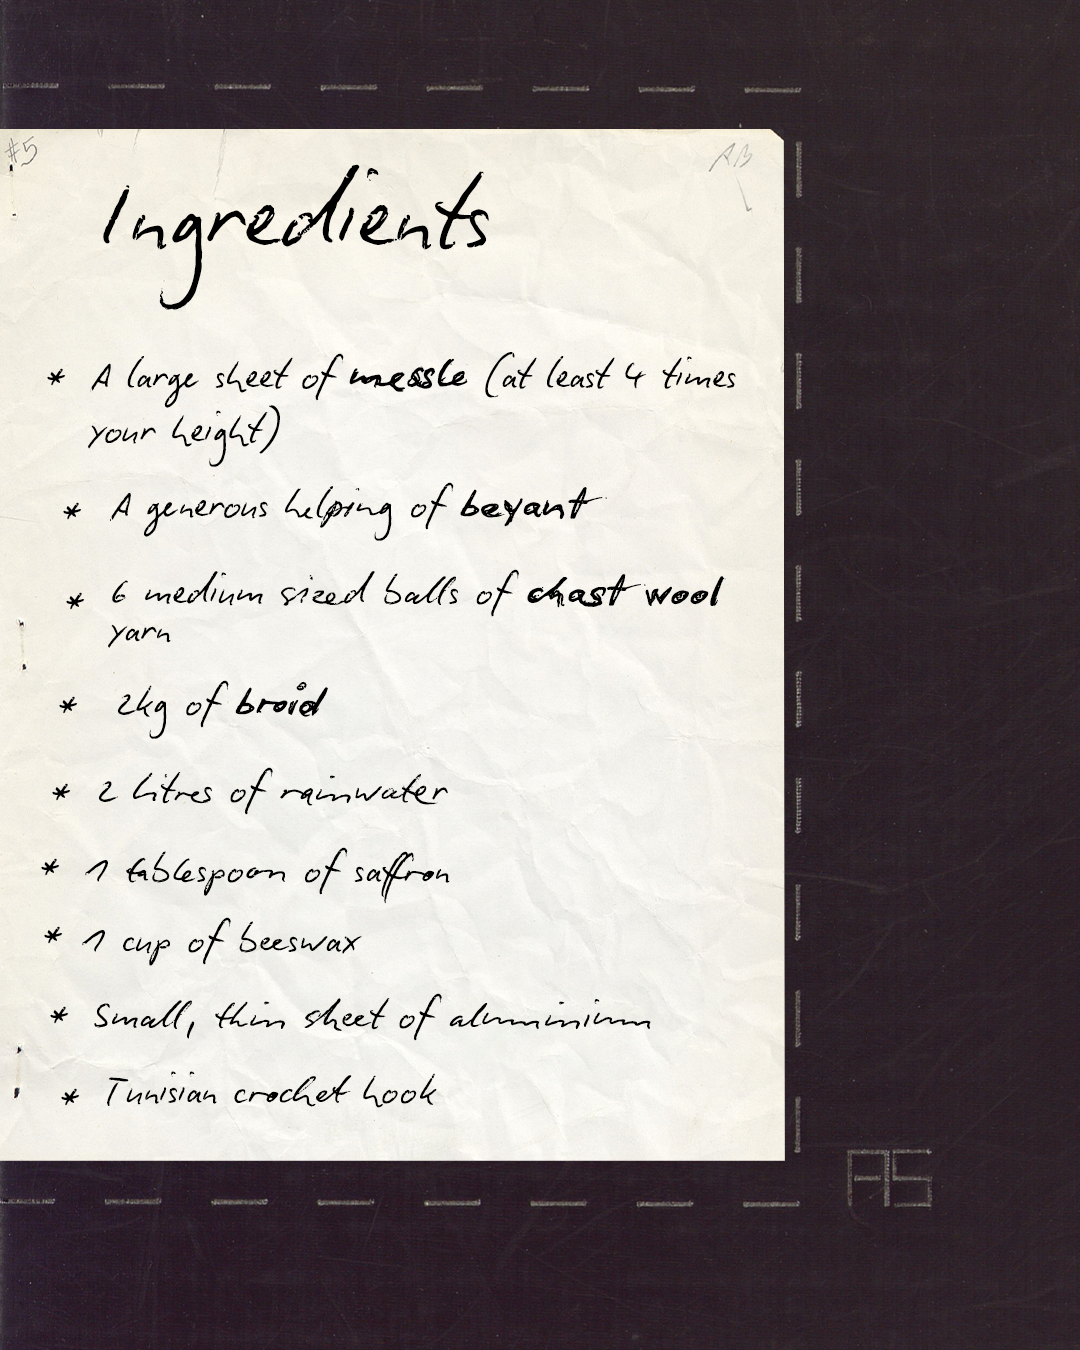 #5
AB
Ingredients
* A large sheet of messle (at least 4 times
your height)
* A generous helping of beyant
* 6 medium sized balls of chast wool
yarn
* 2kg of broid
* 2 litres of rainwater
* 1 tablespoon of saffron
* 1 cup of beeswax
* Small, thin sheet of aluminium
* Tunisian crochet hook
A5